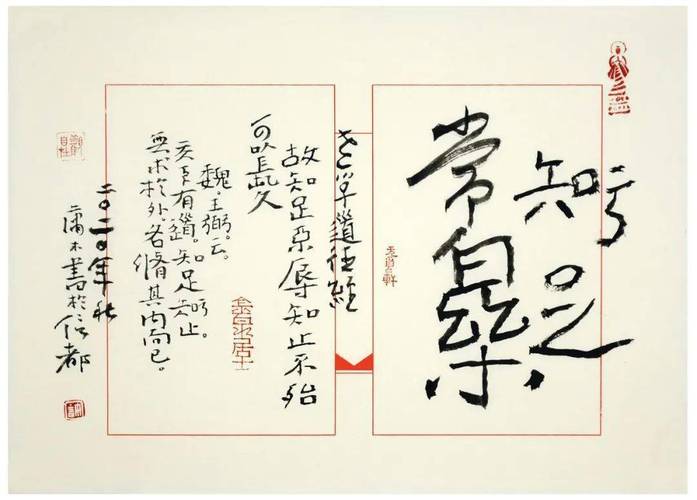 知足
常樂
老子道德經
故知足不辱知止不殆
可以長久
魏王弼云。
天下有道。知足知止。
無求於外各脩其內而已。
二〇二〇年秋
蒲木書於信都